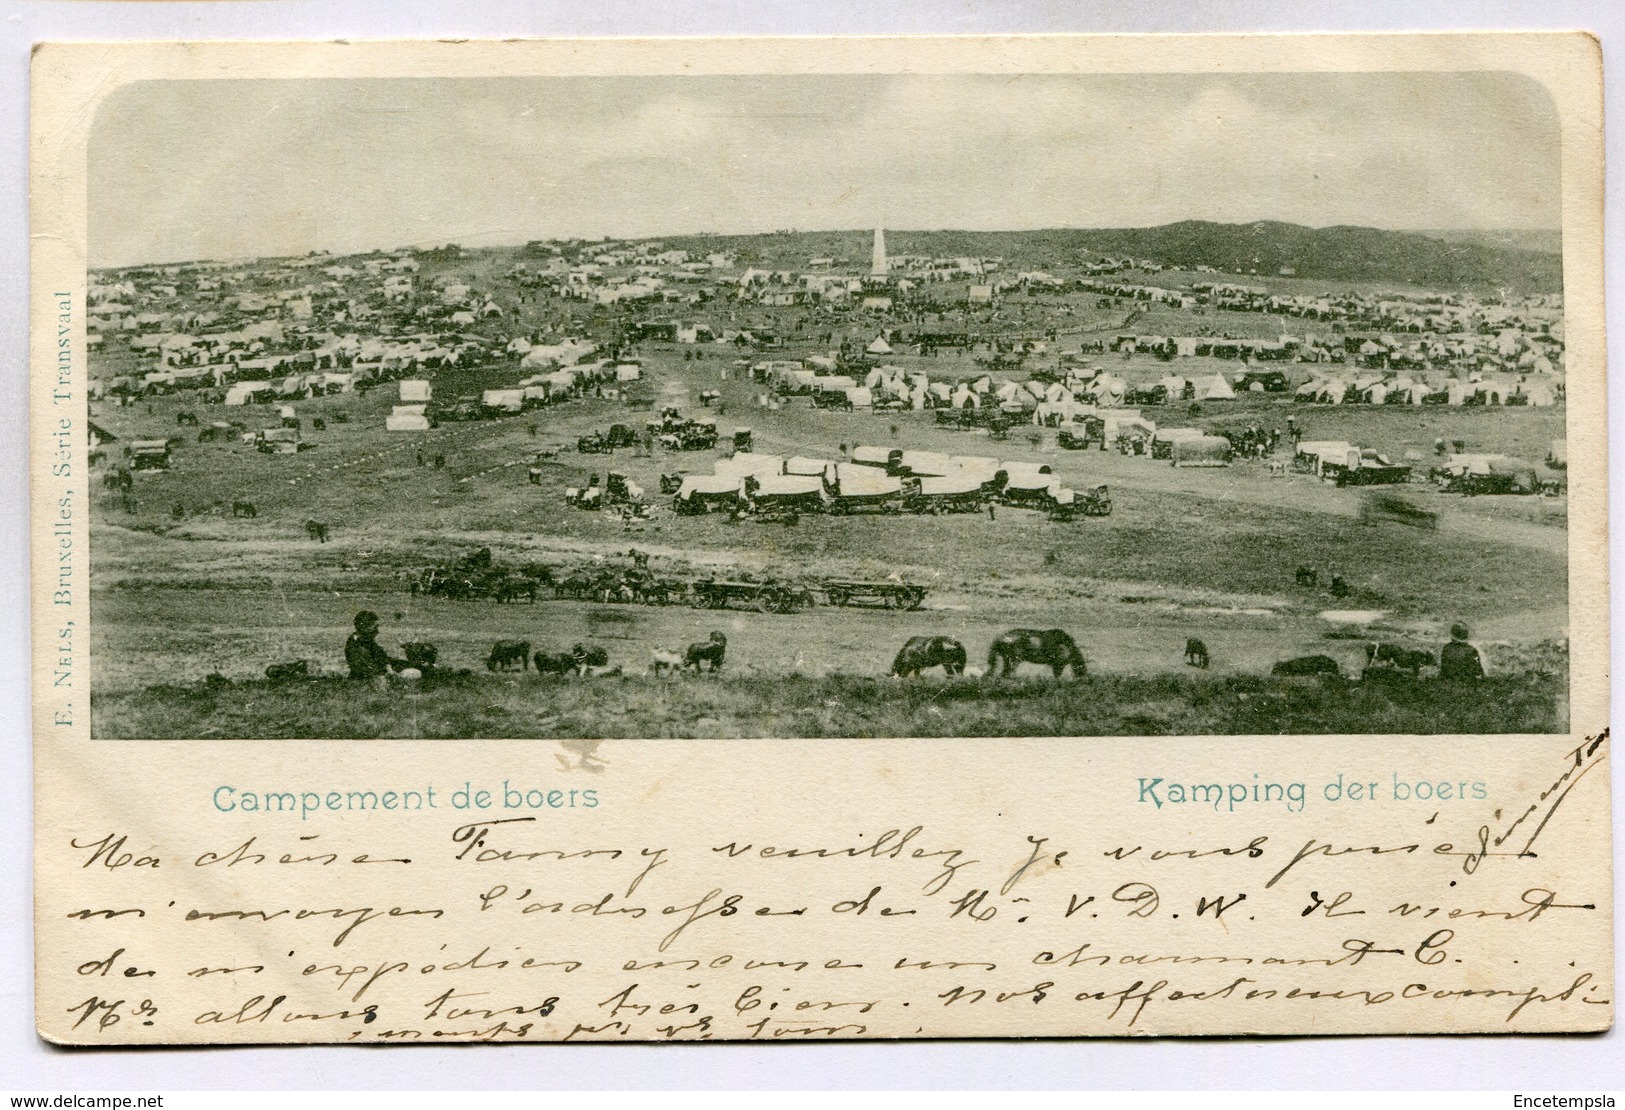 E. NELS, Bruxelles, Série Transvaal
Campement de boers
Kamping der boers
Ma chère Fanny veuillez je vous prie
m'envoyer l'adresse de Mr. V. D. W. Il vient
de m'expédier encore un charmant C. . .
Ns. allons tous très bien. Nos affectueux compli-
ments pr. vs. tous.
www.delcampe.net
Encetempsla